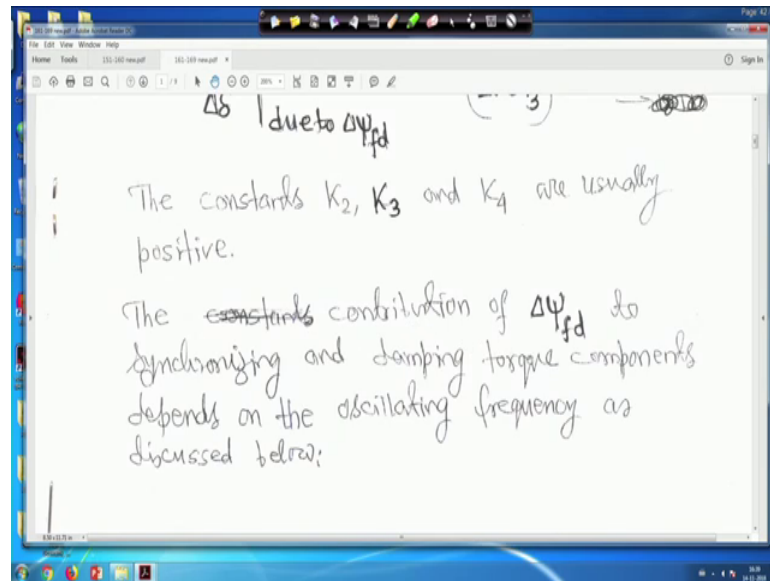 Page: 42
161-169 new.pdf - Adobe Acrobat Reader DC
File Edit View Window Help
Home Tools 151-160 new.pdf 161-169 new.pdf × Sign In
1 / 9
Δδ | due to Δψfd
3
The constants K2, K3 and K4 are usually
positive.
The constants contribution of Δψfd to
synchronizing and damping torque components
depends on the oscillating frequency as
discussed below:
8.50 x 11.71 in
16:39